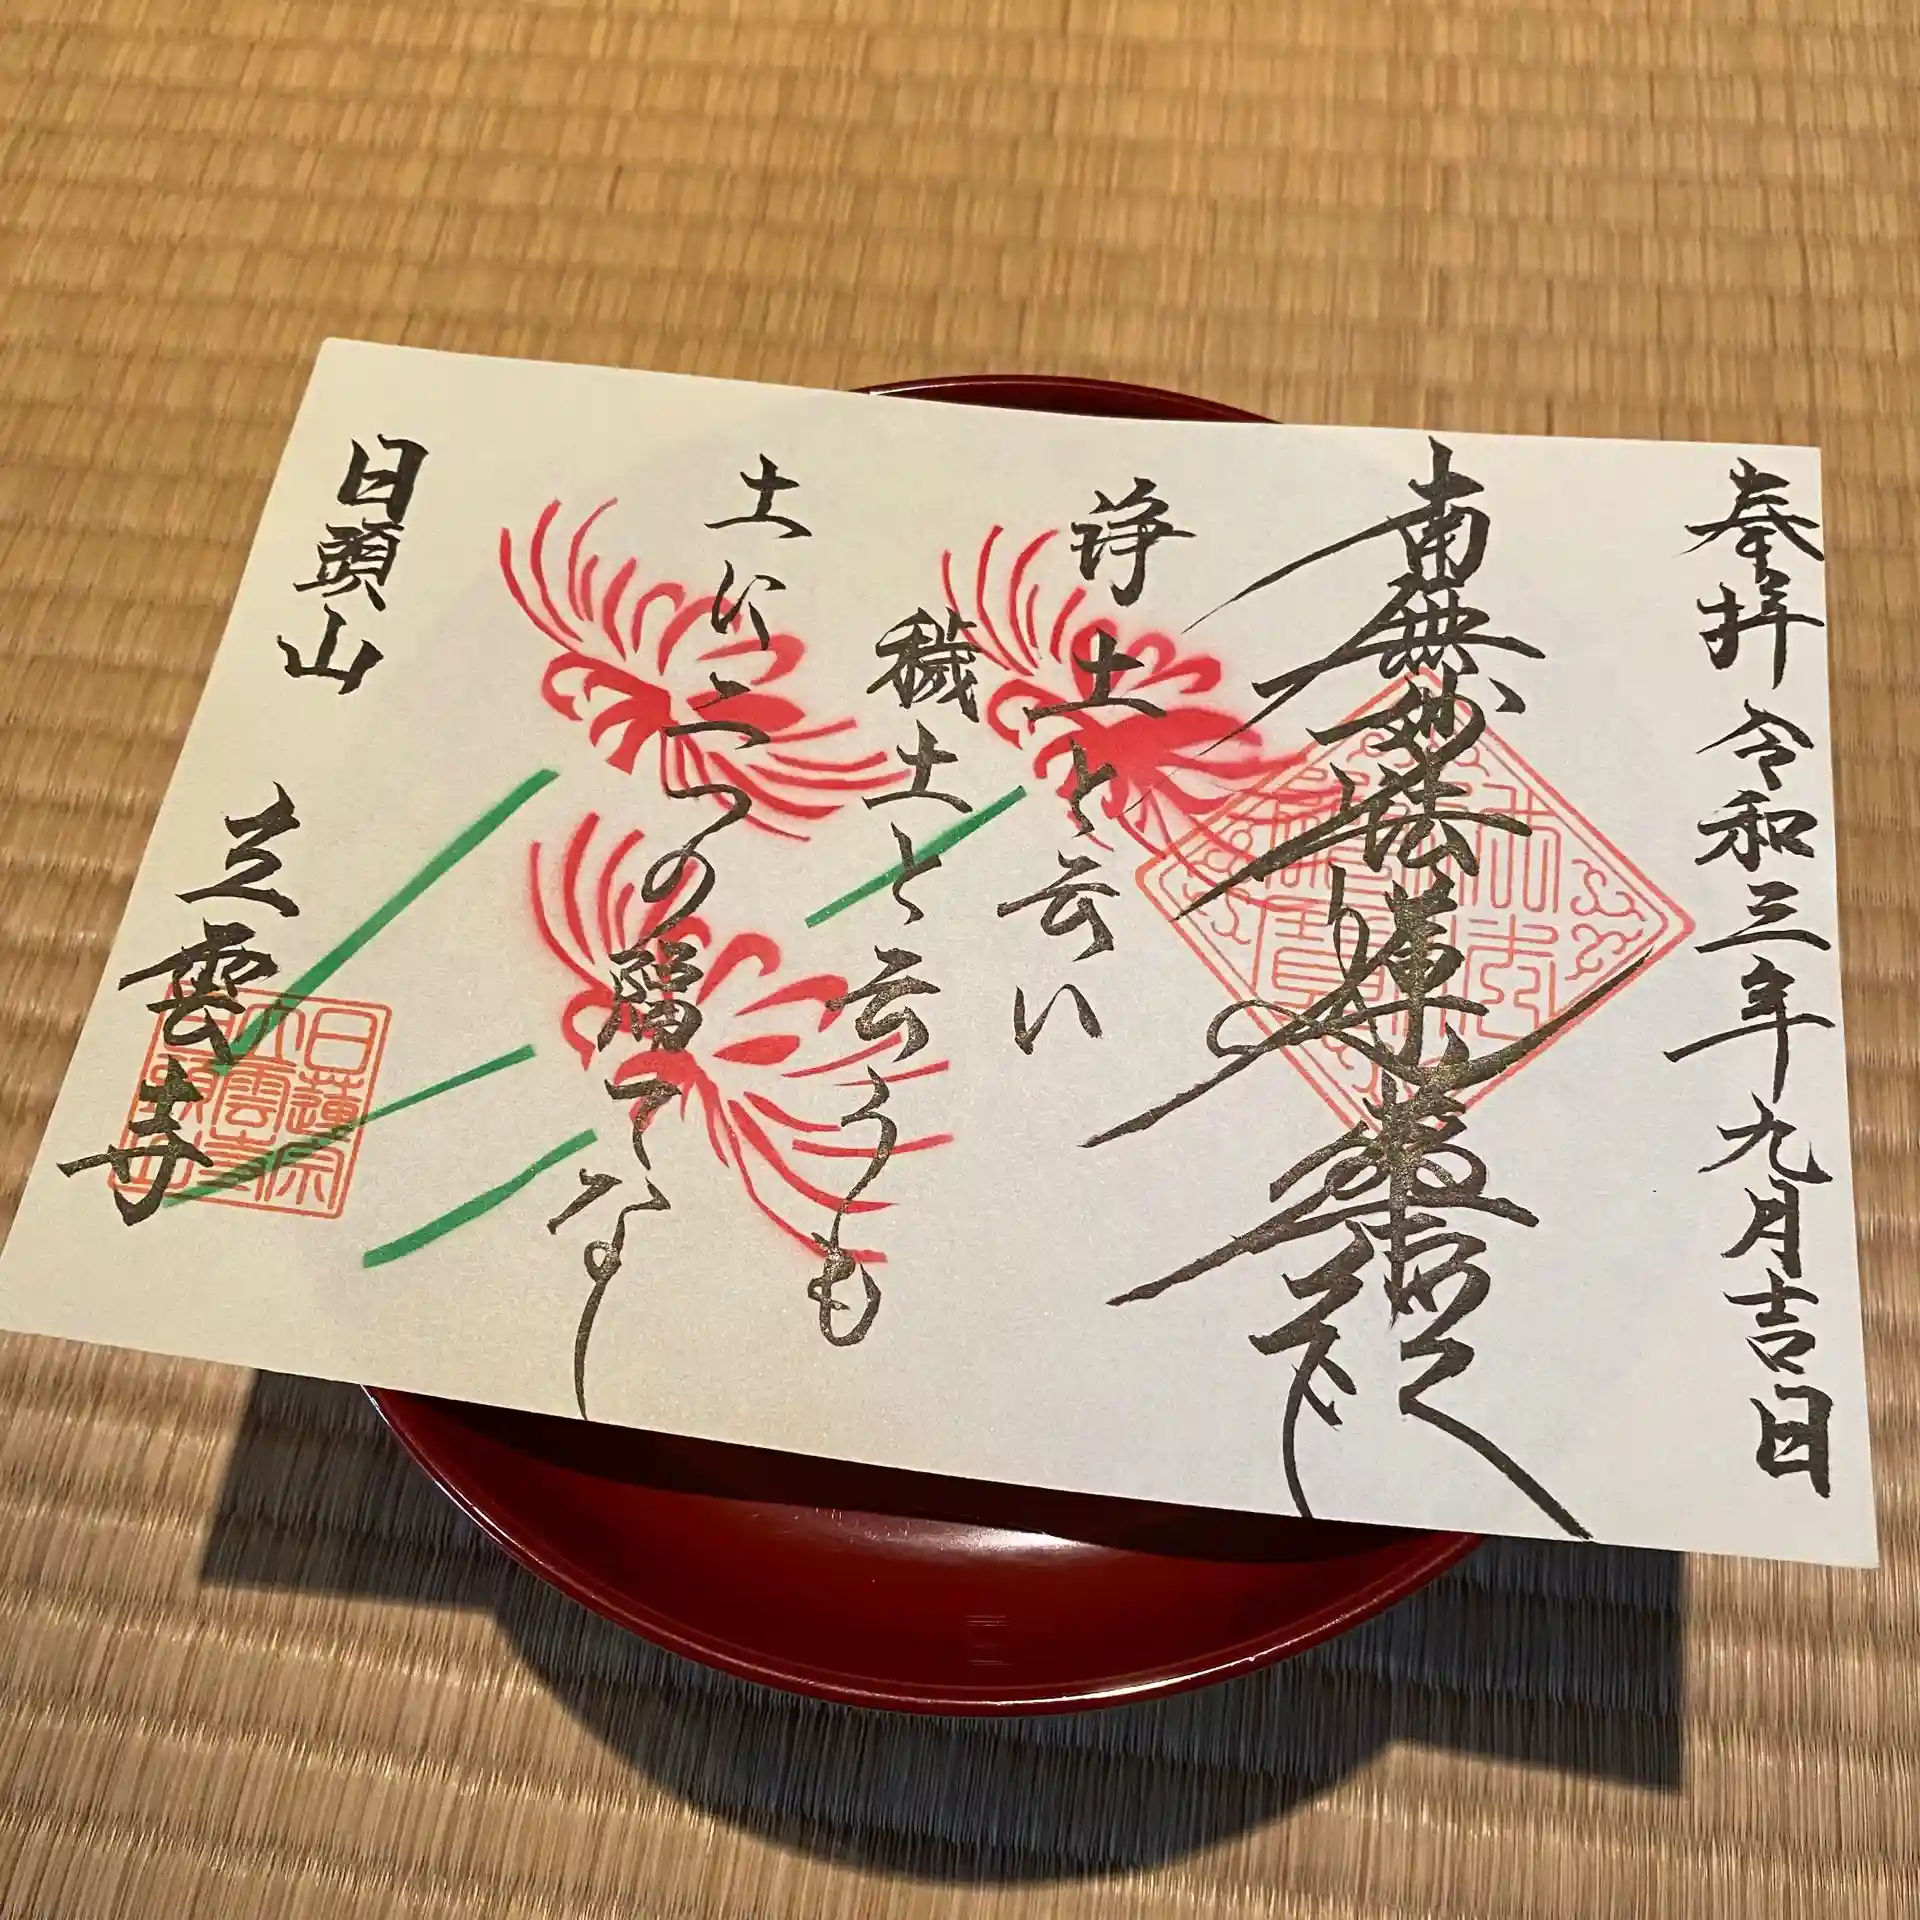 奉拝 令和三年九月吉日
南無妙法蓮華経
浄土と云い
穢土と云うも
土に二つの隔てなし
日頭山
立雲寺
日蓮宗
立雲寺
日頭山